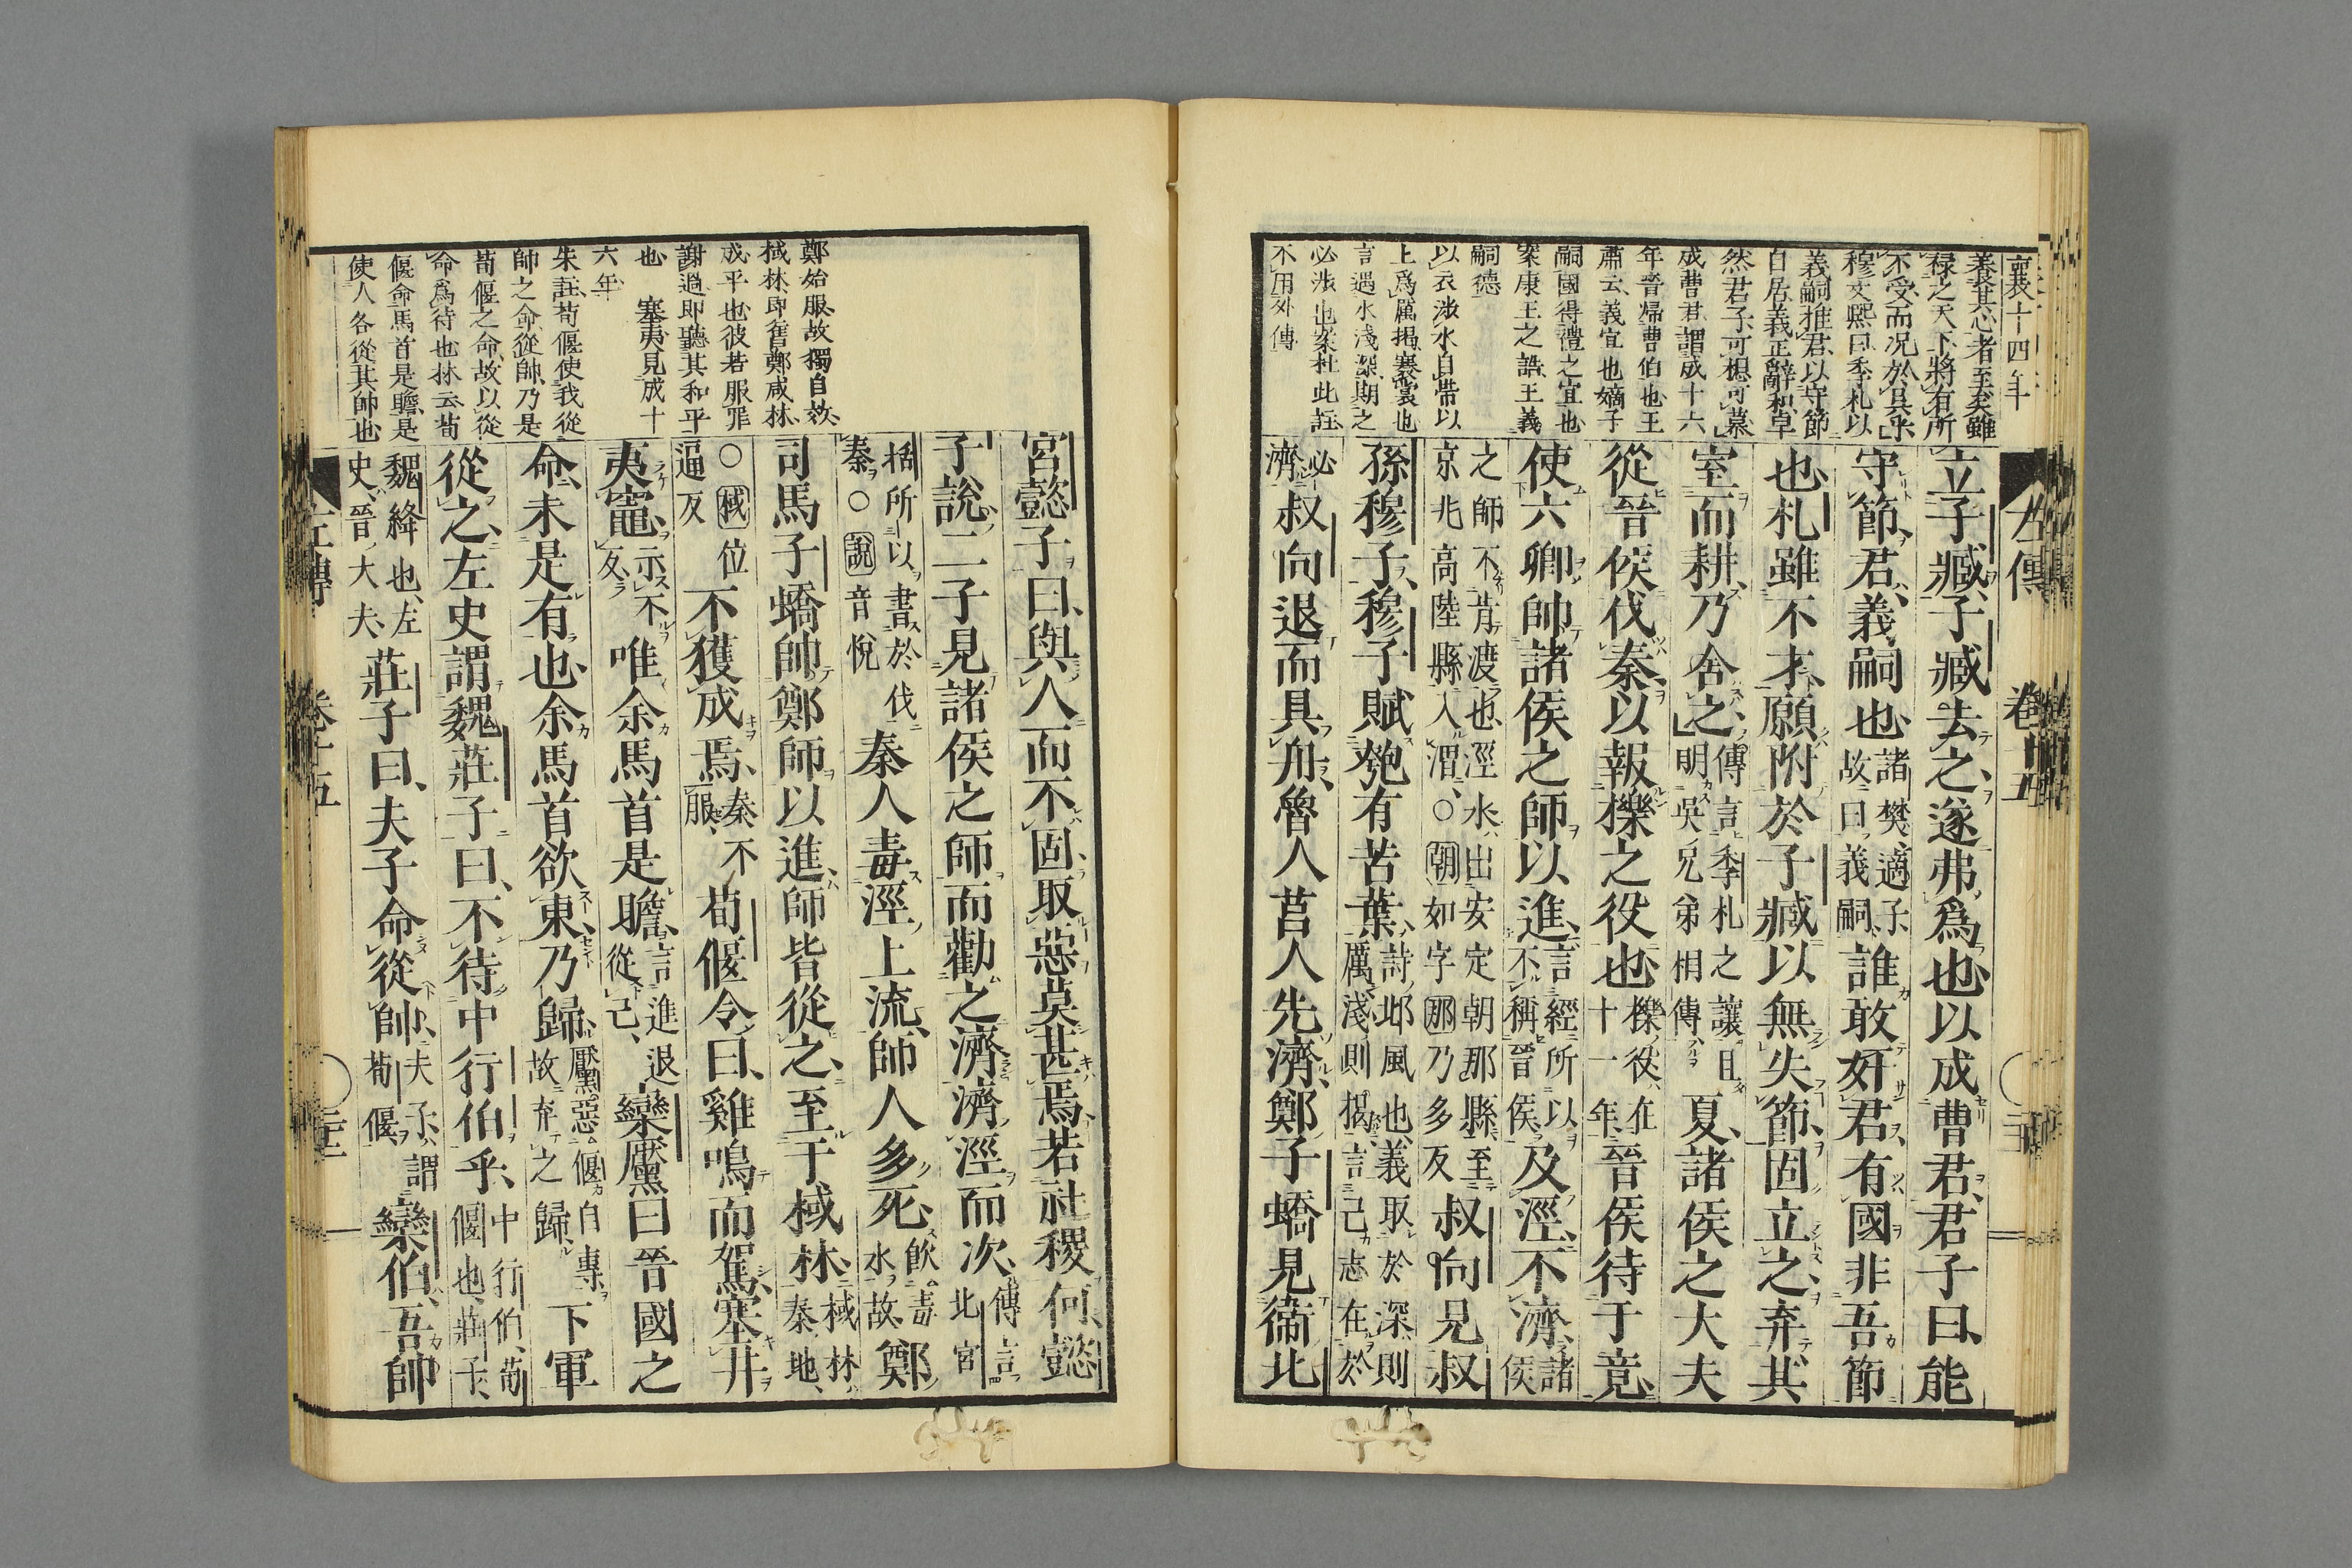 襄十四年
養其心者至矣雖
祿之天下將有所
不受而況於呉乎
穆文熙曰季札以
義嗣推君以守節
自居義正辭和卓
然君子可想可慕
成曹君謂成十六
年晉歸曹伯也王
肅云義宜也嫡子
嗣國得禮之宜也
案康王之誥王義
嗣德
以衣渉水自帶以
上爲厲揭褰裳也
言遇水淺深期之
必渉也案杜此註
不用外傳
左傳
卷十五
立子臧子臧去之遂弗爲也以成曹君君子曰能
守節君義嗣也諸樊適子故曰義嗣誰敢奸君有國非吾節
也札雖不才願附於子臧以無失節固立之弃其
室而耕乃舍之傳言季札之讓且明呉兄弟相傳夏諸侯之大夫
從晉侯伐秦以報櫟之役也櫟役在十一年晉侯待于竟
使六卿帥諸侯之師以進言經所以不稱晉侯及涇不濟諸侯
之師不肯渡也涇水出安定朝那縣至京兆高陸縣入渭○朝如字那乃多反叔向見叔
孫穆子穆子賦匏有苦葉詩邶風也義取於深則厲淺則揭言己志在於
必濟叔向退而具舟魯人莒人先濟鄭子蟜見衞北
鄭始服故獨自效
棫林即舊鄭咸林
成平也彼若服罪
謝過即聽其和平
也 塞夷見成十
六年
朱註荀偃使我從
帥之命從帥乃是
荀偃之命故以從
命爲待也林云荀
偃命馬首是瞻是
使人各從其帥也
宮懿子曰與人而不固取惡莫甚焉若社稷何懿
子說二子見諸侯之師而勸之濟濟涇而次傳言北宮
括所以書於伐秦○說音悅秦人毒涇上流師人多死飲毒水故鄭
司馬子蟜帥鄭師以進師皆從之至于棫林棫林秦地
○棫位逼反不獲成焉秦不服荀偃令曰雞鳴而駕塞井
夷竈示不反唯余馬首是瞻言進退從己欒黶曰晉國之
命未是有也余馬首欲東乃歸黶惡偃自專故弃之歸下軍
從之左史謂魏莊子曰不待中行伯乎中行伯荀偃也莊子
魏絳也左史晉大夫莊子曰夫子命從帥夫子謂荀偃欒伯吾帥
左傳
卷十五